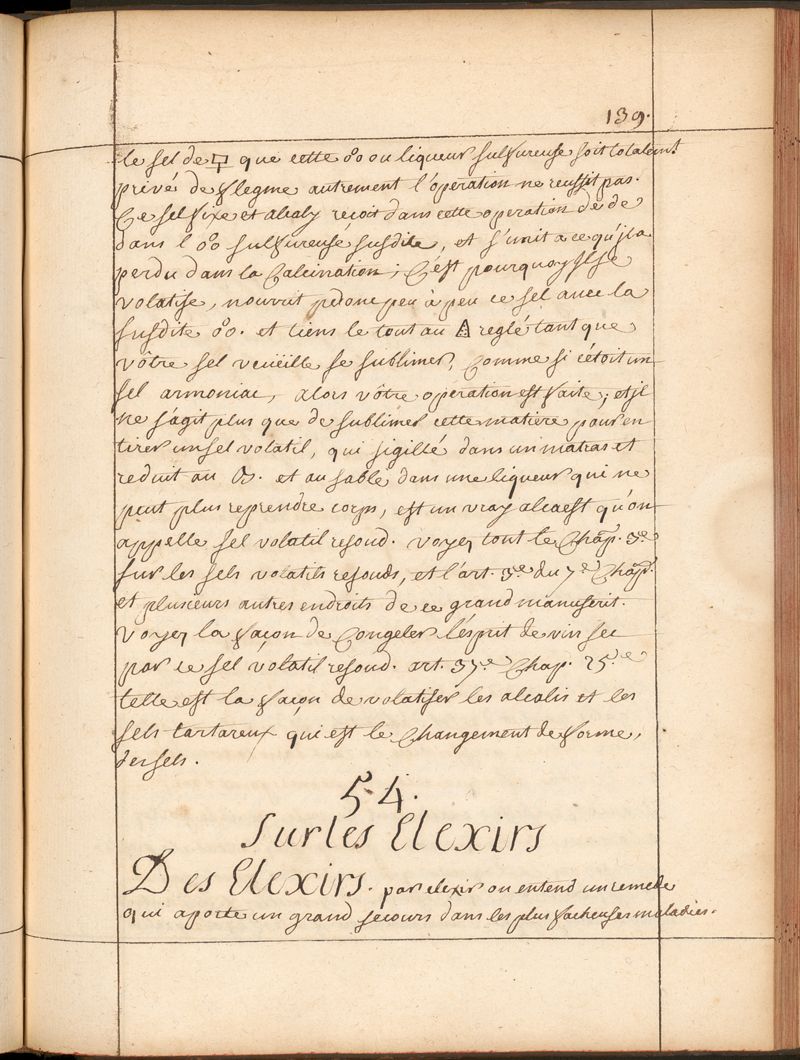 139.
le sel de 🜿 que cette o°o ou liqueur sulfureuse soit totalemt.
privé de flegme autrement l'operation ne reussit pas.
Ce sel fixe et alcaly reçoit dans cette operation de de
dans l'o°o sulfureuse susdite, et s'unit a ce qu'il a
perdu dans la Calcination; C'est pourquoy Il se
volatise, nourrit pe donc peu à peu ce sel avec la
susdite o°o. et tiens le tout au 🜂 reglé tant que
vôtre sel veüeille se sublimer, Comme si c'étoit un
sel armoniac, alors vôtre operation est faite; et il
ne s'agit plus que de sublimer cette matiere pour en
tirer un sel volatil, qui sigillé dans un matras et
reduit au B. et au sable dans une liqueur qui ne
peut plus reprendre corps, est un vray alcaest qu'on
appelle sel volatil resoud. voyez tout le Chap. 3.e
sur les sels volatils resouds, et l'art. 3.e du 7.e Chap.
et plusieurs autres endroits de ce grand manuscrit.
Voyez la façon de Congeler l'esprit de vin sec
par ce sel volatil resoud. art. 37.e Chap. 25.e
telle est la façon de volatiser les alcalis et les
sels tartareux qui est le Changement de forme,
des sels.
54.
Sur les Elexirs
Des Elexirs. par elexir on entend un remede
qui aporte un grand secours dans les plus facheuses maladies.